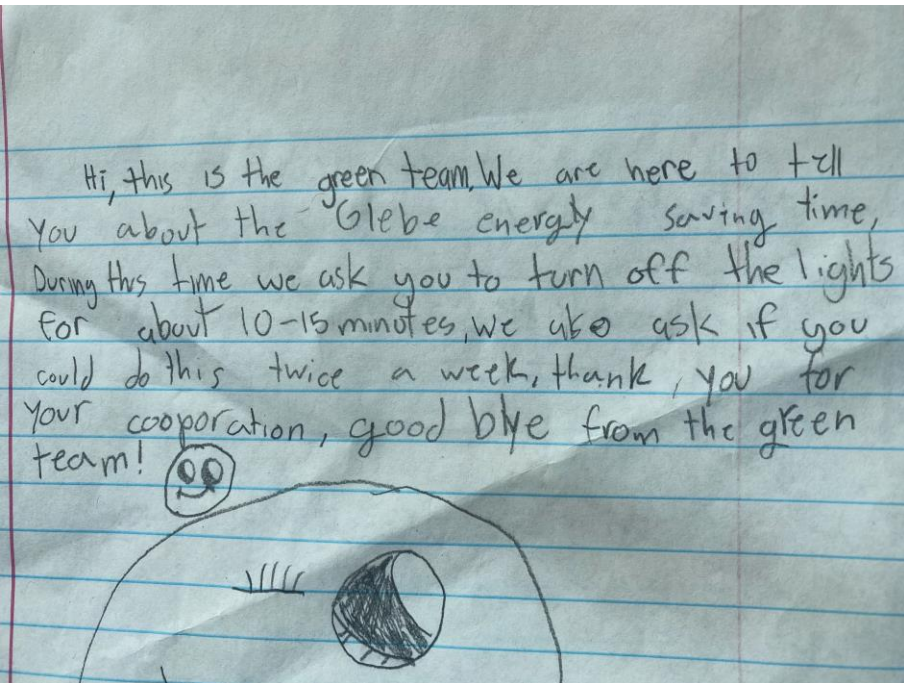 Hi, this is the green team. We are here to tell
you about the Glebe energly saving time,
During this time we ask you to turn off the lights
for about 10-15 minutes, we also ask if you
could do this twice a week, thank, you for
your cooporation, good blye from the green
team!